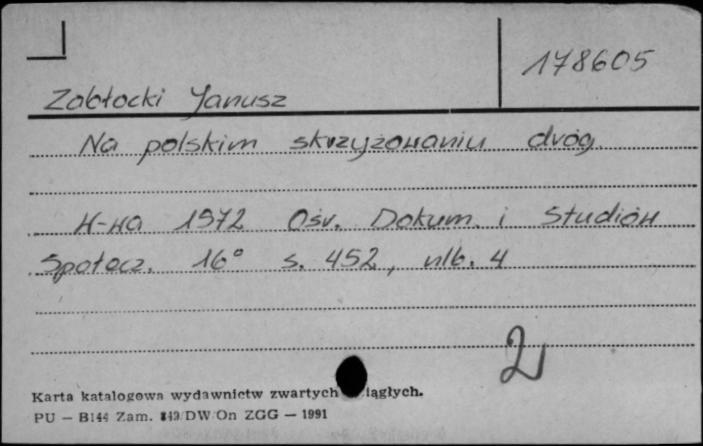 178605
Zabłocki Janusz
Na polskim skrzyżowaniu dróg
W-wa 1972 Ośr. Dokum. i Studiów
Społecz. 16° s. 452, nlb. 4
2
Karta katalogowa wydawnictw zwartych iągłych.
PU — B144 Zam. 843/DW/On ZGG — 1991